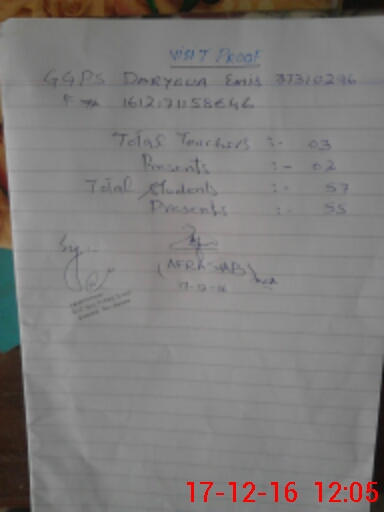 VISIT PROOF
GGPS DARYOVA EMIS 37310296
Total Teachers :- 03
Presents :- 02
Total Students :- 57
Presents :- 55
(AFRASIAB)
17-12-16
17-12-16 12:05